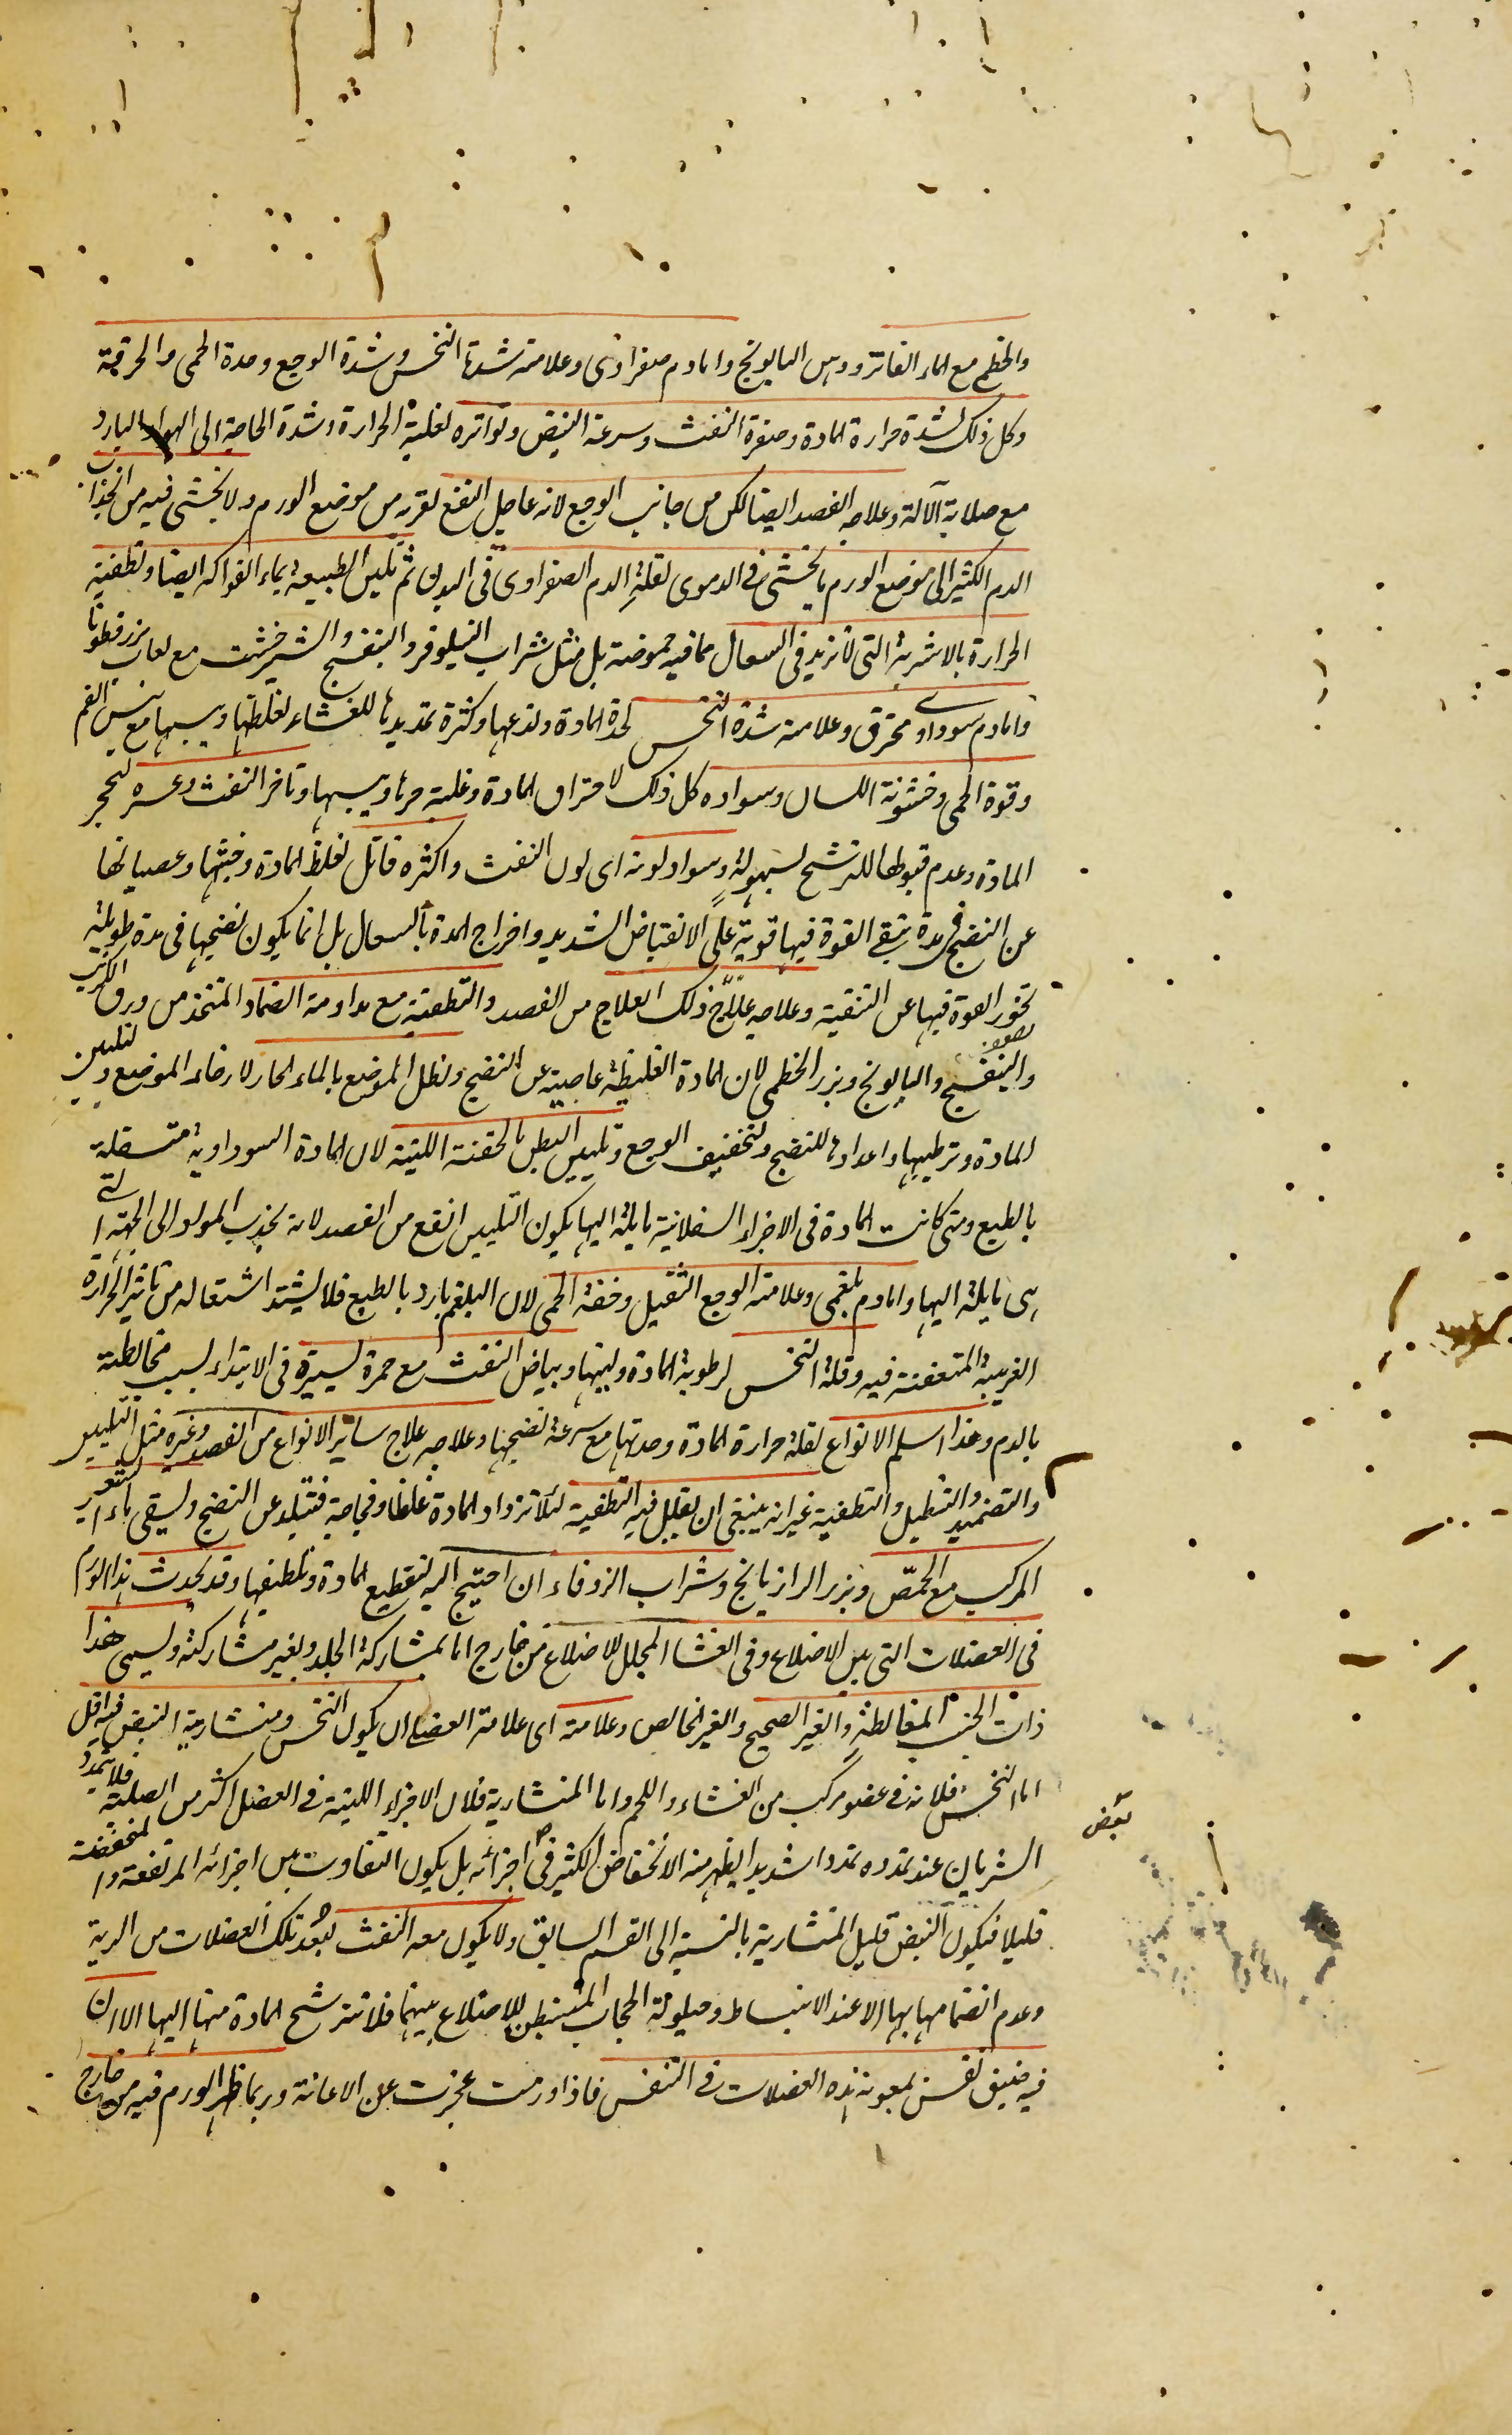 والخطمى مع الماء الفاتر ودهن البابونج واما دم صفراوى وعلامته شدة النخس وشدة الوجع وحدة الحمى والحرقة
وكل ذلك لشدة حرارة المادة وصفرة النفث وسرعة النبض وتواتره لغلبة الحرارة وشدة الحاجة الى الهواء البارد
مع صلابة الآلة وعلاجه الفصد ايضا لكن من جانب الوجع لانه عاجل النفع لقربه من موضع الورم ولا يخشى فيه من انجذاب
الدم الكثير الى موضع الورم ما يخشى فى الدموى لقلة الدم الصفراوى فى البدن ثم تليين الطبيعة بماء الفواكه ايضا وتطفية
الحرارة بالاشربة التى لا تزيد فى السعال مما فيه حموضة بل مثل شراب النيلوفر والبنفسج والشيرخشت مع لعاب بزرقطونا
واما دم سوداوى محترق وعلامته شدة النخس لحدة المادة ولذعها وكثرة تمديدها للغشاء لغلظها ويبسها مع يبس الفم
وقوة الحمى وخشونة اللسان وسواده كل ذلك لاحتراق المادة وغلبة حرها ويبسها وتاخر النفث وعسره لتحجر
المادة وعدم قبولها للترشح بسهولة وسواد لونه اى لون النفث واكثره قاتل لغلظ المادة وخبثها وعصيانها
عن النضج فى مدة يبقى القوة فيها قوية على الانقباض الشديد واخراج المدة بالسعال بل انما يكون نضجها فى مدة طويلة
تخور القوة فيها عن التنقية وعلاجه علاج ذلك العلاج من الفصد والتطفية مع مداومة الضماد المتخذ من ورق الكرنب
والبنفسج والبابونج وبزر الخطمى لان المادة الغليظة عاصية عن النضج ونطل الموضع بالماء الحار لارخاء الموضع وتليين
المادة وترطيبها واعدادها للنضج ولتخفيف الوجع وتليين البطن بالحقنة اللينة لان المادة السوداوية متسفلة
بالطبع ومتى كانت المادة فى الاجزاء السفلانية مايلة اليها يكون التليين انفع من الفصد لانه يجذب المواد الى الجهة التى
هى مايلة اليها واما دم بلغمى وعلامته الوجع الثقيل وخفة الحمى لان البلغم بارد بالطبع فلا يشتد اشتعاله من تاثير الحرارة
الغريبة المتعفنة فيه وقلة النخس لرطوبة المادة ولينها وبياض النفث مع حمرة يسيرة فى الابتداء بسبب مخالطته
بالدم وهذا اسلم الانواع لقلة حرارة المادة وحدتها مع سرعة نضجها وعلاجه علاج ساير الانواع من الفصد وغيره مثل التليين
والتضميد والتنطيل والتطفية غير انه ينبغى ان يقلل فيه التطفية لئلا تزداد المادة غلظا وفجاجة فتبلد عن النضج ويسقى ماء الشعير
المركب مع الحمص وبزر الرازيانج وشراب الزوفاء ان احتيج اليه لتقطيع المادة وتلطيفها وقد يحدث هذا الورم
فى العضلات التى بين الاضلاع وفى الغشا المجلل للاضلاع من خارج اما بمشاركة الجلد وبغير مشاركته ويسمى هذا
ذات الجنب المغالطة والغير الصحيح والغير الخالص وعلامته اى علامة العضلى ان يكون النخس ومنشارية النبض فيه اقل
اما النخس فلانه فى عضو مركب من الغشاء واللحم واما المنشارية فلان الاجزاء اللينة فى العضل اكثر من الصلبة فلا يتمدد
الشريان عند تمدده تمددا شديدا يظهر منه الانخفاض الكثير فى اجزائه بل يكون التفاوت بين اجزائه المرتفعة والمنخفضة
بعض
قليلا فيكون النبض قليل المنشارية بالنسبة الى القسم السابق ولا يكون معه النفث لبعد تلك العضلات من الرية
وعدم انضمامها بها الا عند الانبساط وحيلولة الحجاب المستبطن للاضلاع بينهما فلا تترشح المادة منها اليها الا ان
فيه ضيق نفس لمعونة هذه العضلات فى التنفس فاذا ورمت عجزت عن الاعانة وربما ظهر الورم فيه من خارج